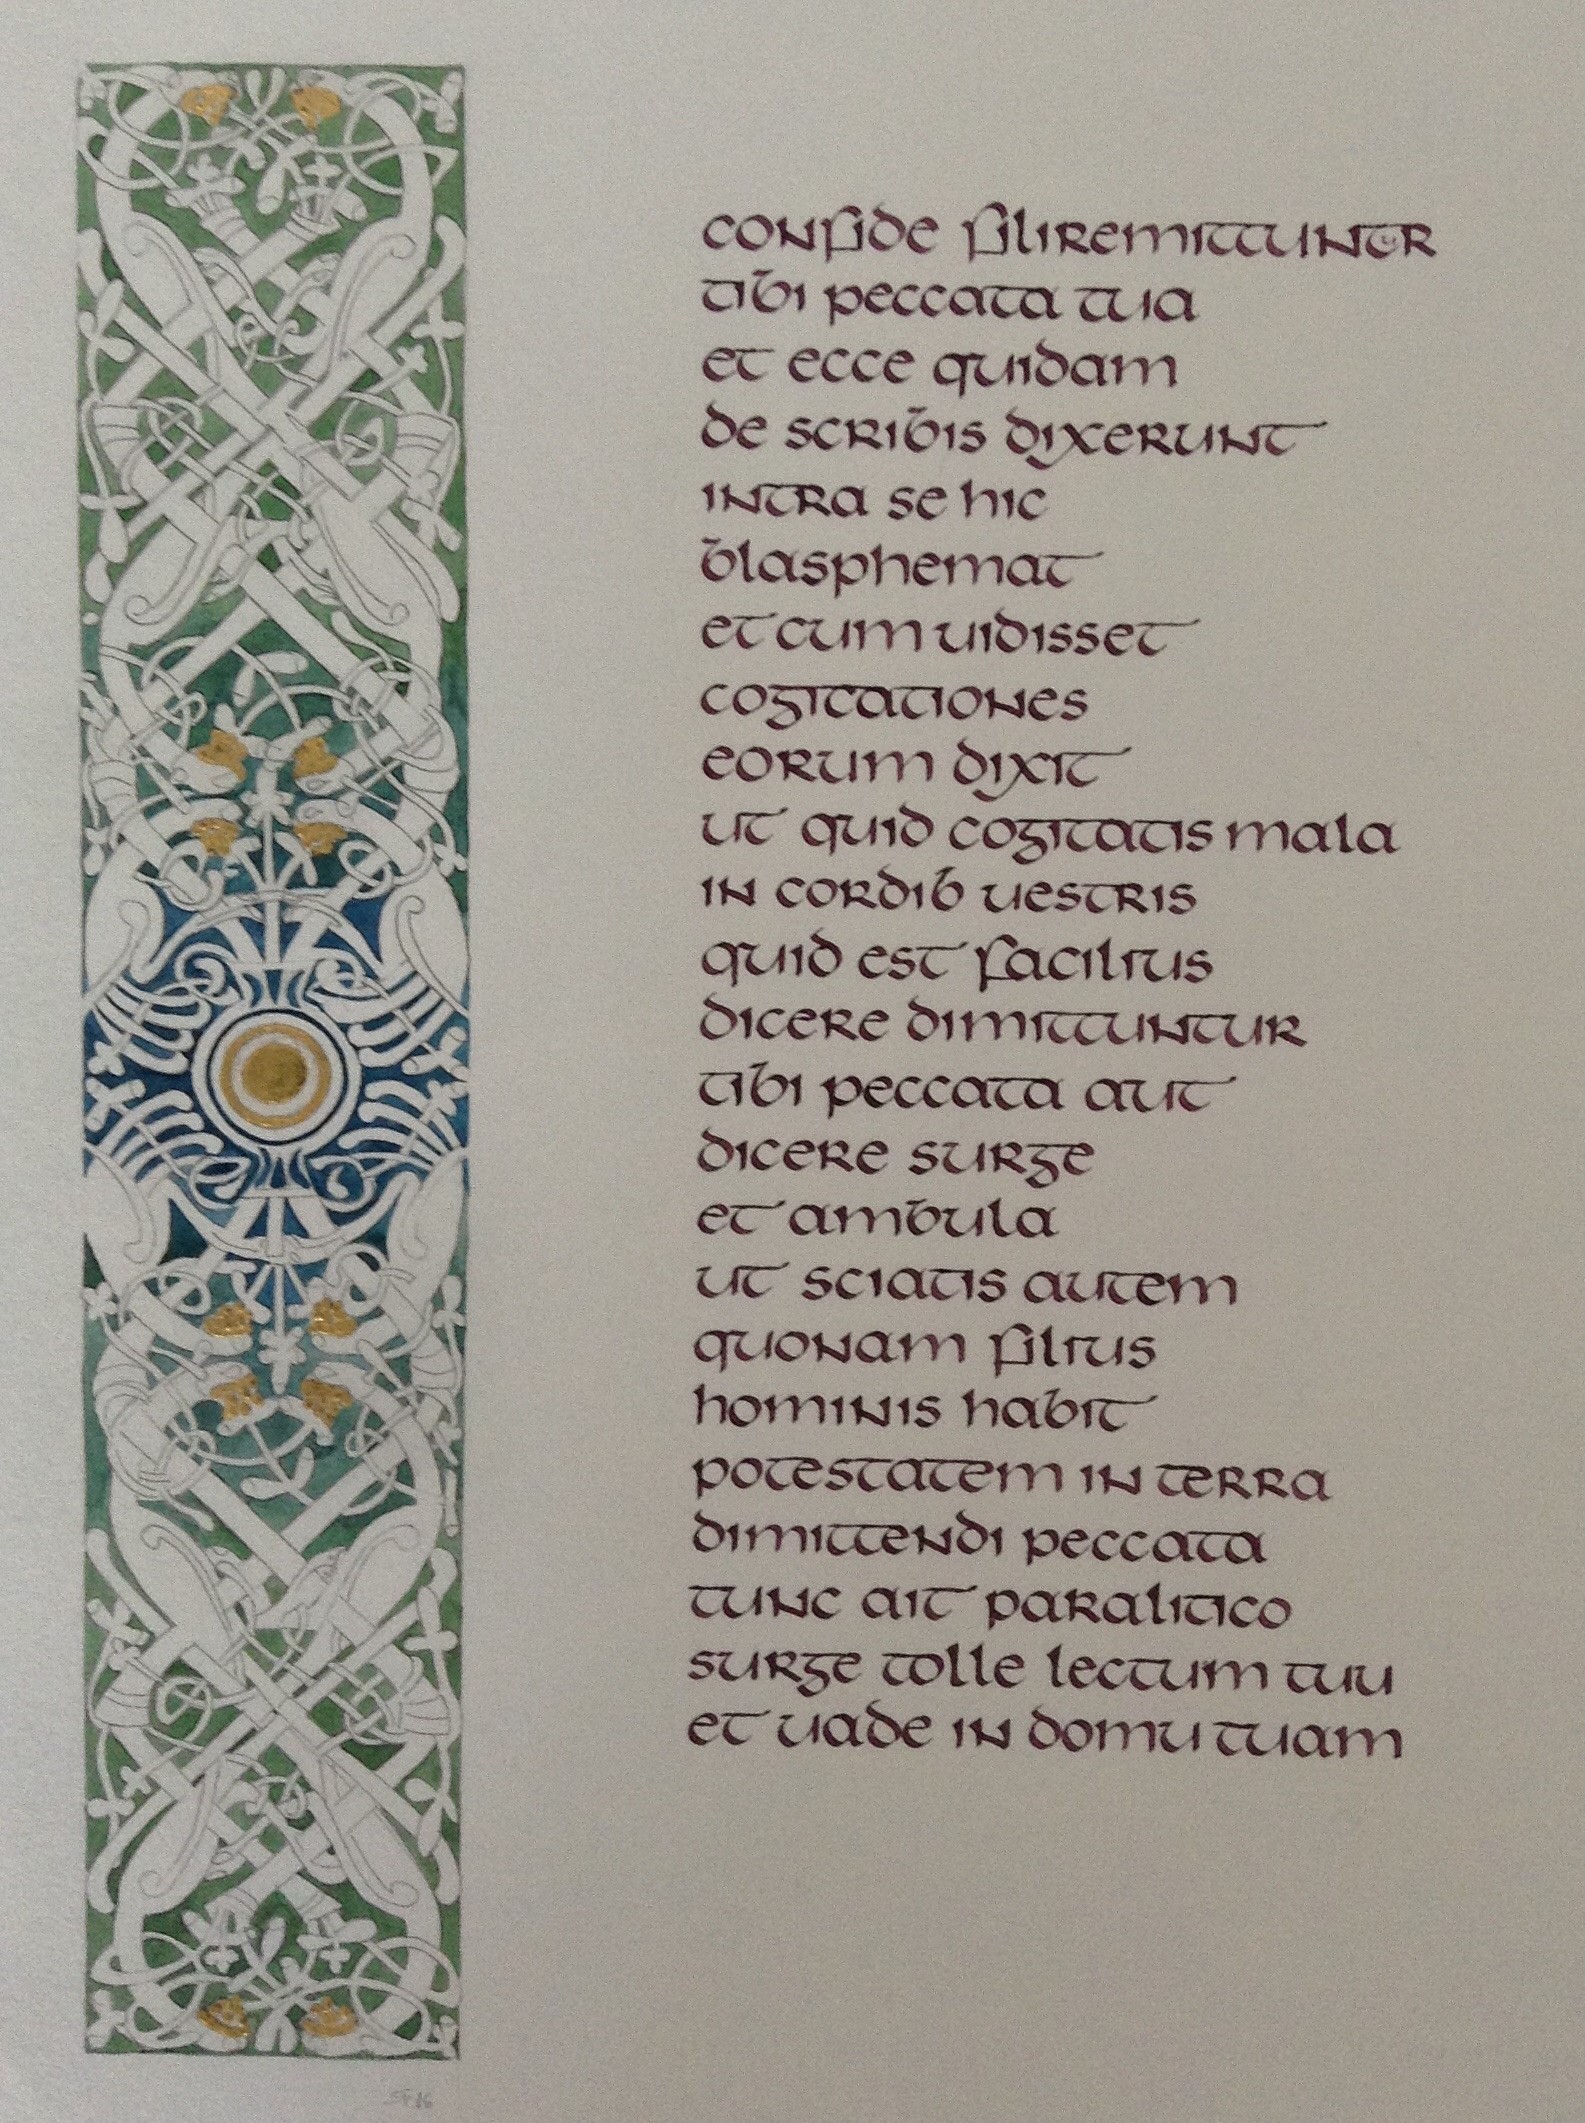 confide filiremittuntr
tibi peccata tua
et ecce quidam
de scribis dixerunt
intra se hic
blasphemat
et cum uidisset
cogitationes
eorum dixit
ut quid cogitatis mala
in cordib uestris
quid est facilius
dicere dimittuntur
tibi peccata aut
dicere surge
et ambula
ut sciatis autem
quonam filius
hominis habit
potestatem in terra
dimittendi peccata
tunc ait paralitico
surge tolle lectum tuu
et uade in domu tuam